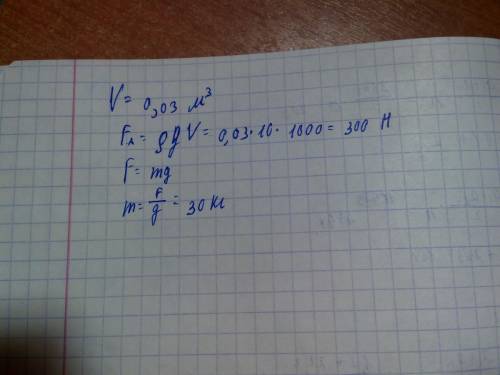 V = 0,03 м³
Fₐ = ρgV = 0,03·10·1000 = 300 Н
F = mg
m = F/g = 30 кг